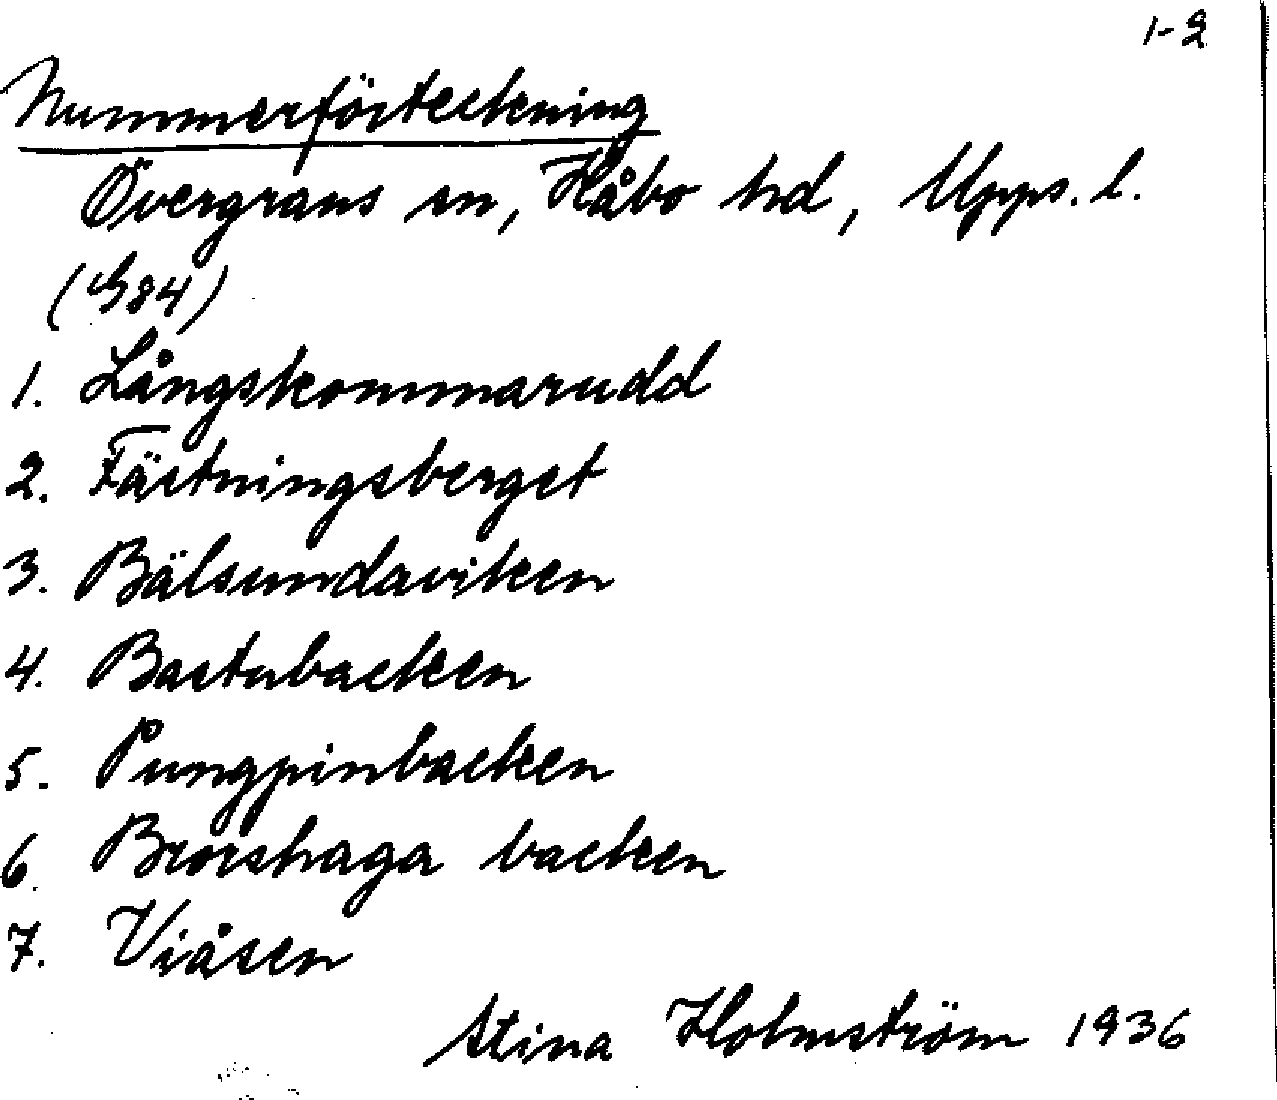 1-2
Nummerförteckning
Övergrans sn, Håbo hd, Upps. l.
(S84)
1. Långskommarudd
2. Fästningsberget
3. Bälsundaviken
4. Bastubacken
5. Pungpinbacken
6. Brorshaga backen
7. Viåsen
Stina Holmström 1936